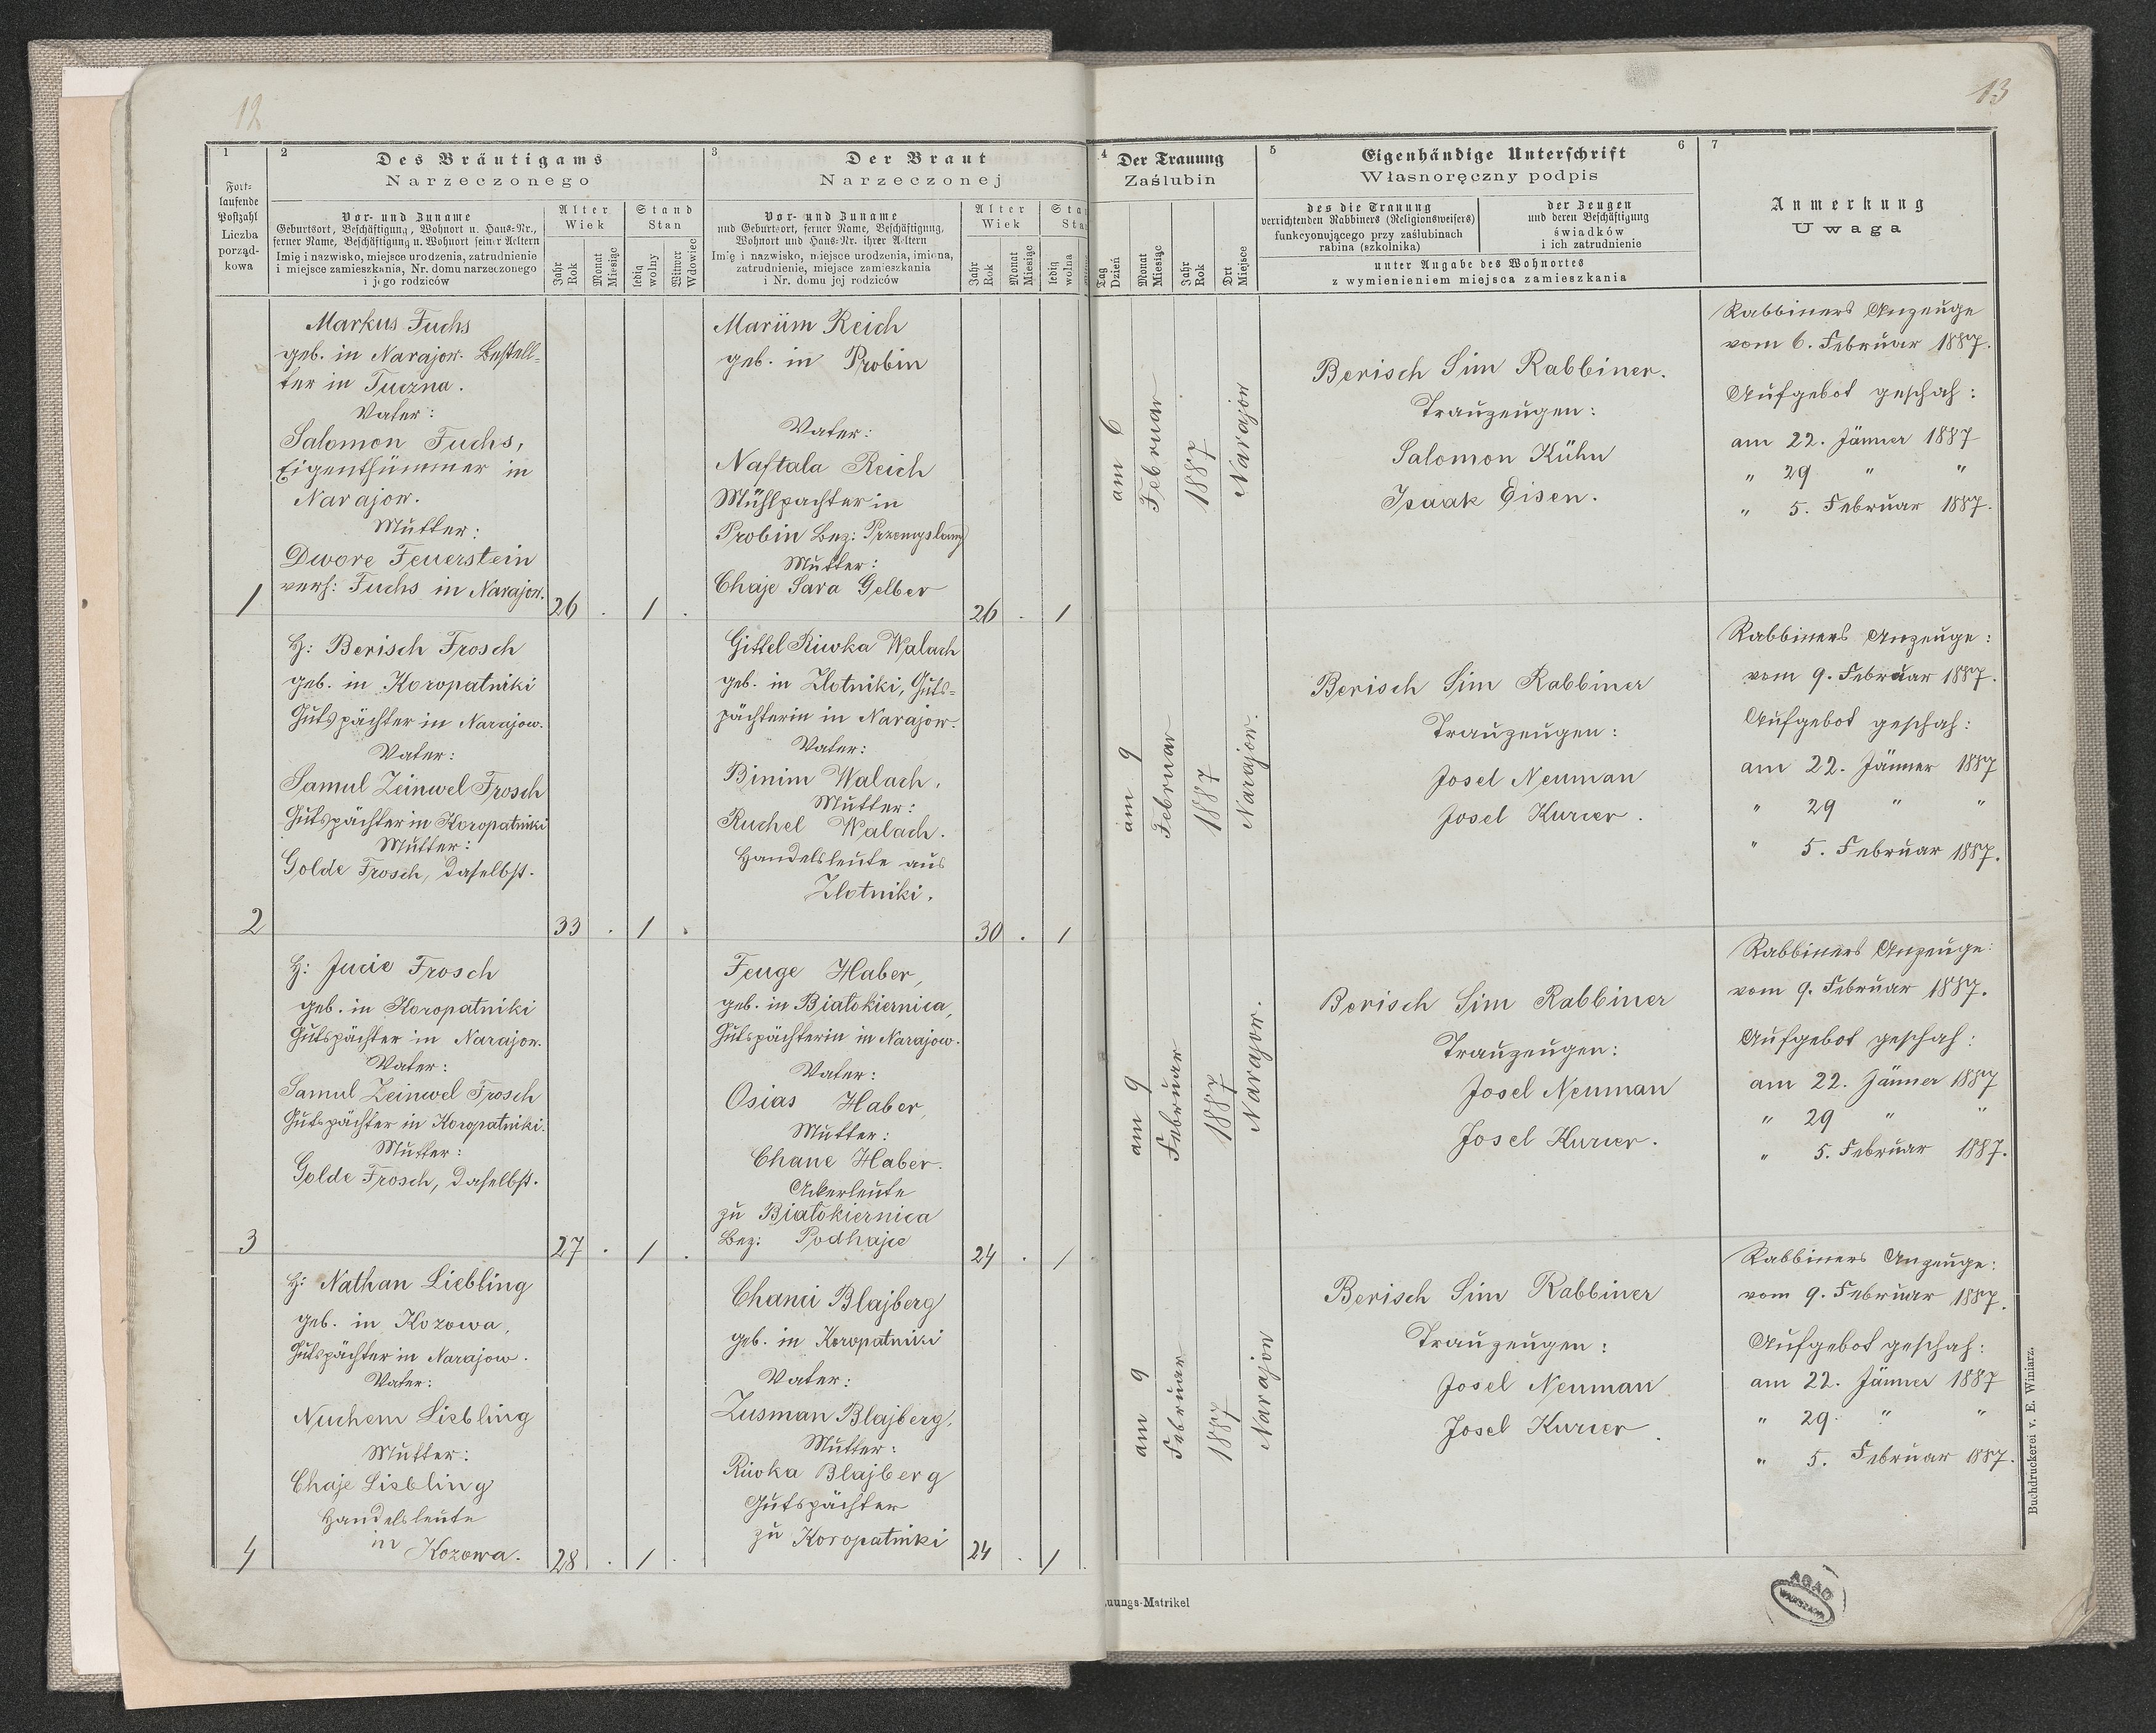 12
13
1
2
3
4
5
6
7
Fort-
laufende
Postzahl
Liczba
porząd-
kowa
Des Bräutigams
Narzeczonego
Vor- und Zuname
Geburtsort, Beschäftigung, Wohnort u. Haus-Nr.,
ferner Name, Beschäftigung u. Wohnort seiner Aeltern
Imię i nazwisko, miejsce urodzenia, zatrudnienie
i miejsce zamieszkania, Nr. domu narzeczonego
i jego rodziców
Alter
Wiek
Jahr
Rok
Monat
Miesiąc
Stand
Stan
ledig
wolny
Witwer
Wdowiec
Der Braut
Narzeczonej
Vor- und Zuname
und Geburtsort, ferner Name, Beschäftigung,
Wohnort und Haus-Nr. ihrer Aeltern
Imię i nazwisko, miejsce urodzenia, imiona,
zatrudnienie, miejsce zamieszkania
i Nr. domu jej rodziców
Alter
Wiek
Jahr
Rok
Monat
Miesiąc
Sta
Sta
ledig
wolna
Der Trauung
Zaślubin
Tag
Dzień
Monat
Miesiąc
Jahr
Rok
Ort
Miejsce
Eigenhändige Unterschrift
Własnoręczny podpis
des die Trauung
verrichtenden Rabbiners (Religionsweisers)
funkcyonującego przy zaślubinach
rabina (szkolnika)
der Zeugen
und deren Beschäftigung
świadków
i ich zatrudnienie
unter Angabe des Wohnortes
z wymienieniem miejsca zamieszkania
Anmerkung
Uwaga
1
Markus Fuchs
geb. in Narajow. Bestell-
ter in Tuczna.
Vater:
Salomon Fuchs,
Eigenthümmer in
Narajow.
Mutter:
Dwore Feuerstein
verh: Fuchs in Narajow.
26 . 1 .
Mariim Reich
geb. in Probin
Vater:
Naftala Reich
Mühlpachter in
Probin Bez:
Mutter:
Chaje Sara Gelber
26 . 1
am 6
Februar
1887
Narajow
Berisch Sim Rabbiner.
Trauzeugen:
Salomon Kühn
Isaak Eisen.
Rabbiners Anzeuge
vom 6. Februar 1887.
Aufgebot geschah:
am 22. Jänner 1887
" 29 " "
" 5. Februar 1887.
2
H: Berisch Frosch
geb. in Koropatniki
Gutspächter in Narajow.
Vater:
Samul Zeinwel Frosch
Gutspächter in Koropatniki
Mutter:
Golde Frosch, daselbst.
33 . 1 .
Gittel Riwka Walach
geb. in Zlotniki, Guts-
pächterin in Narajow.
Vater:
Binim Walach.
Mutter:
Ruchel Walach.
Handelsleute aus
Zlotniki.
30 . 1
am 9
Februar
1887
Narajow.
Berisch Sim Rabbiner
Trauzeugen:
Josel Neuman
Josel Kurier.
Rabbiners Anzeuge:
vom 9. Februar 1887.
Aufgebot geschah:
am 22. Jänner 1887
" 29 " "
" 5. Februar 1887.
3
H: Jucie Frosch
geb. in Koropatniki
Gutspächter in Narajow.
Vater:
Samul Zeinwel Frosch
Gutspächter in Koropatniki.
Mutter:
Golde Frosch, daselbst.
27 . 1 .
Feuge Haber,
geb. in Białokiernica,
Gutspächterin in Narajow.
Vater:
Osias Haber,
Mutter:
Chane Haber.
Ackerleute
zu Białokiernica
Bez: Podhajce
24 . 1
am 9
Februar
1887
Narajow.
Berisch Sim Rabbiner
Trauzeugen:
Josel Neuman
Josel Kurier.
Rabbiners Anzeuge:
vom 9. Februar 1887.
Aufgebot geschah:
am 22. Jänner 1887
" 29 " "
" 5. Februar 1887.
4
H: Nathan Liebling
geb. in Kozowa,
Gutspächter in Narajow.
Vater:
Nuchem Liebling
Mutter:
Chaje Liebling
Handelsleute
in Kozowa.
28 . 1 .
Chanci Blajberg
geb. in Koropatniki
Vater:
Zusman Blajberg.
Mutter:
Riwka Blajberg
Gutspächter
zu Koropatniki
24 . 1
am 9
Februar
1887
Narajow
Berisch Sim Rabbiner
Trauzeugen:
Josel Neuman
Josel Kurier.
Rabbiners Anzeuge:
vom 9. Februar 1887.
Aufgebot geschah:
am 22. Jänner 1887
" 29. " "
" 5. Februar 1887.
uungs-Matrikel
Buchdruckerei v. E. Winiarz.
AGAD
WARSZAWA